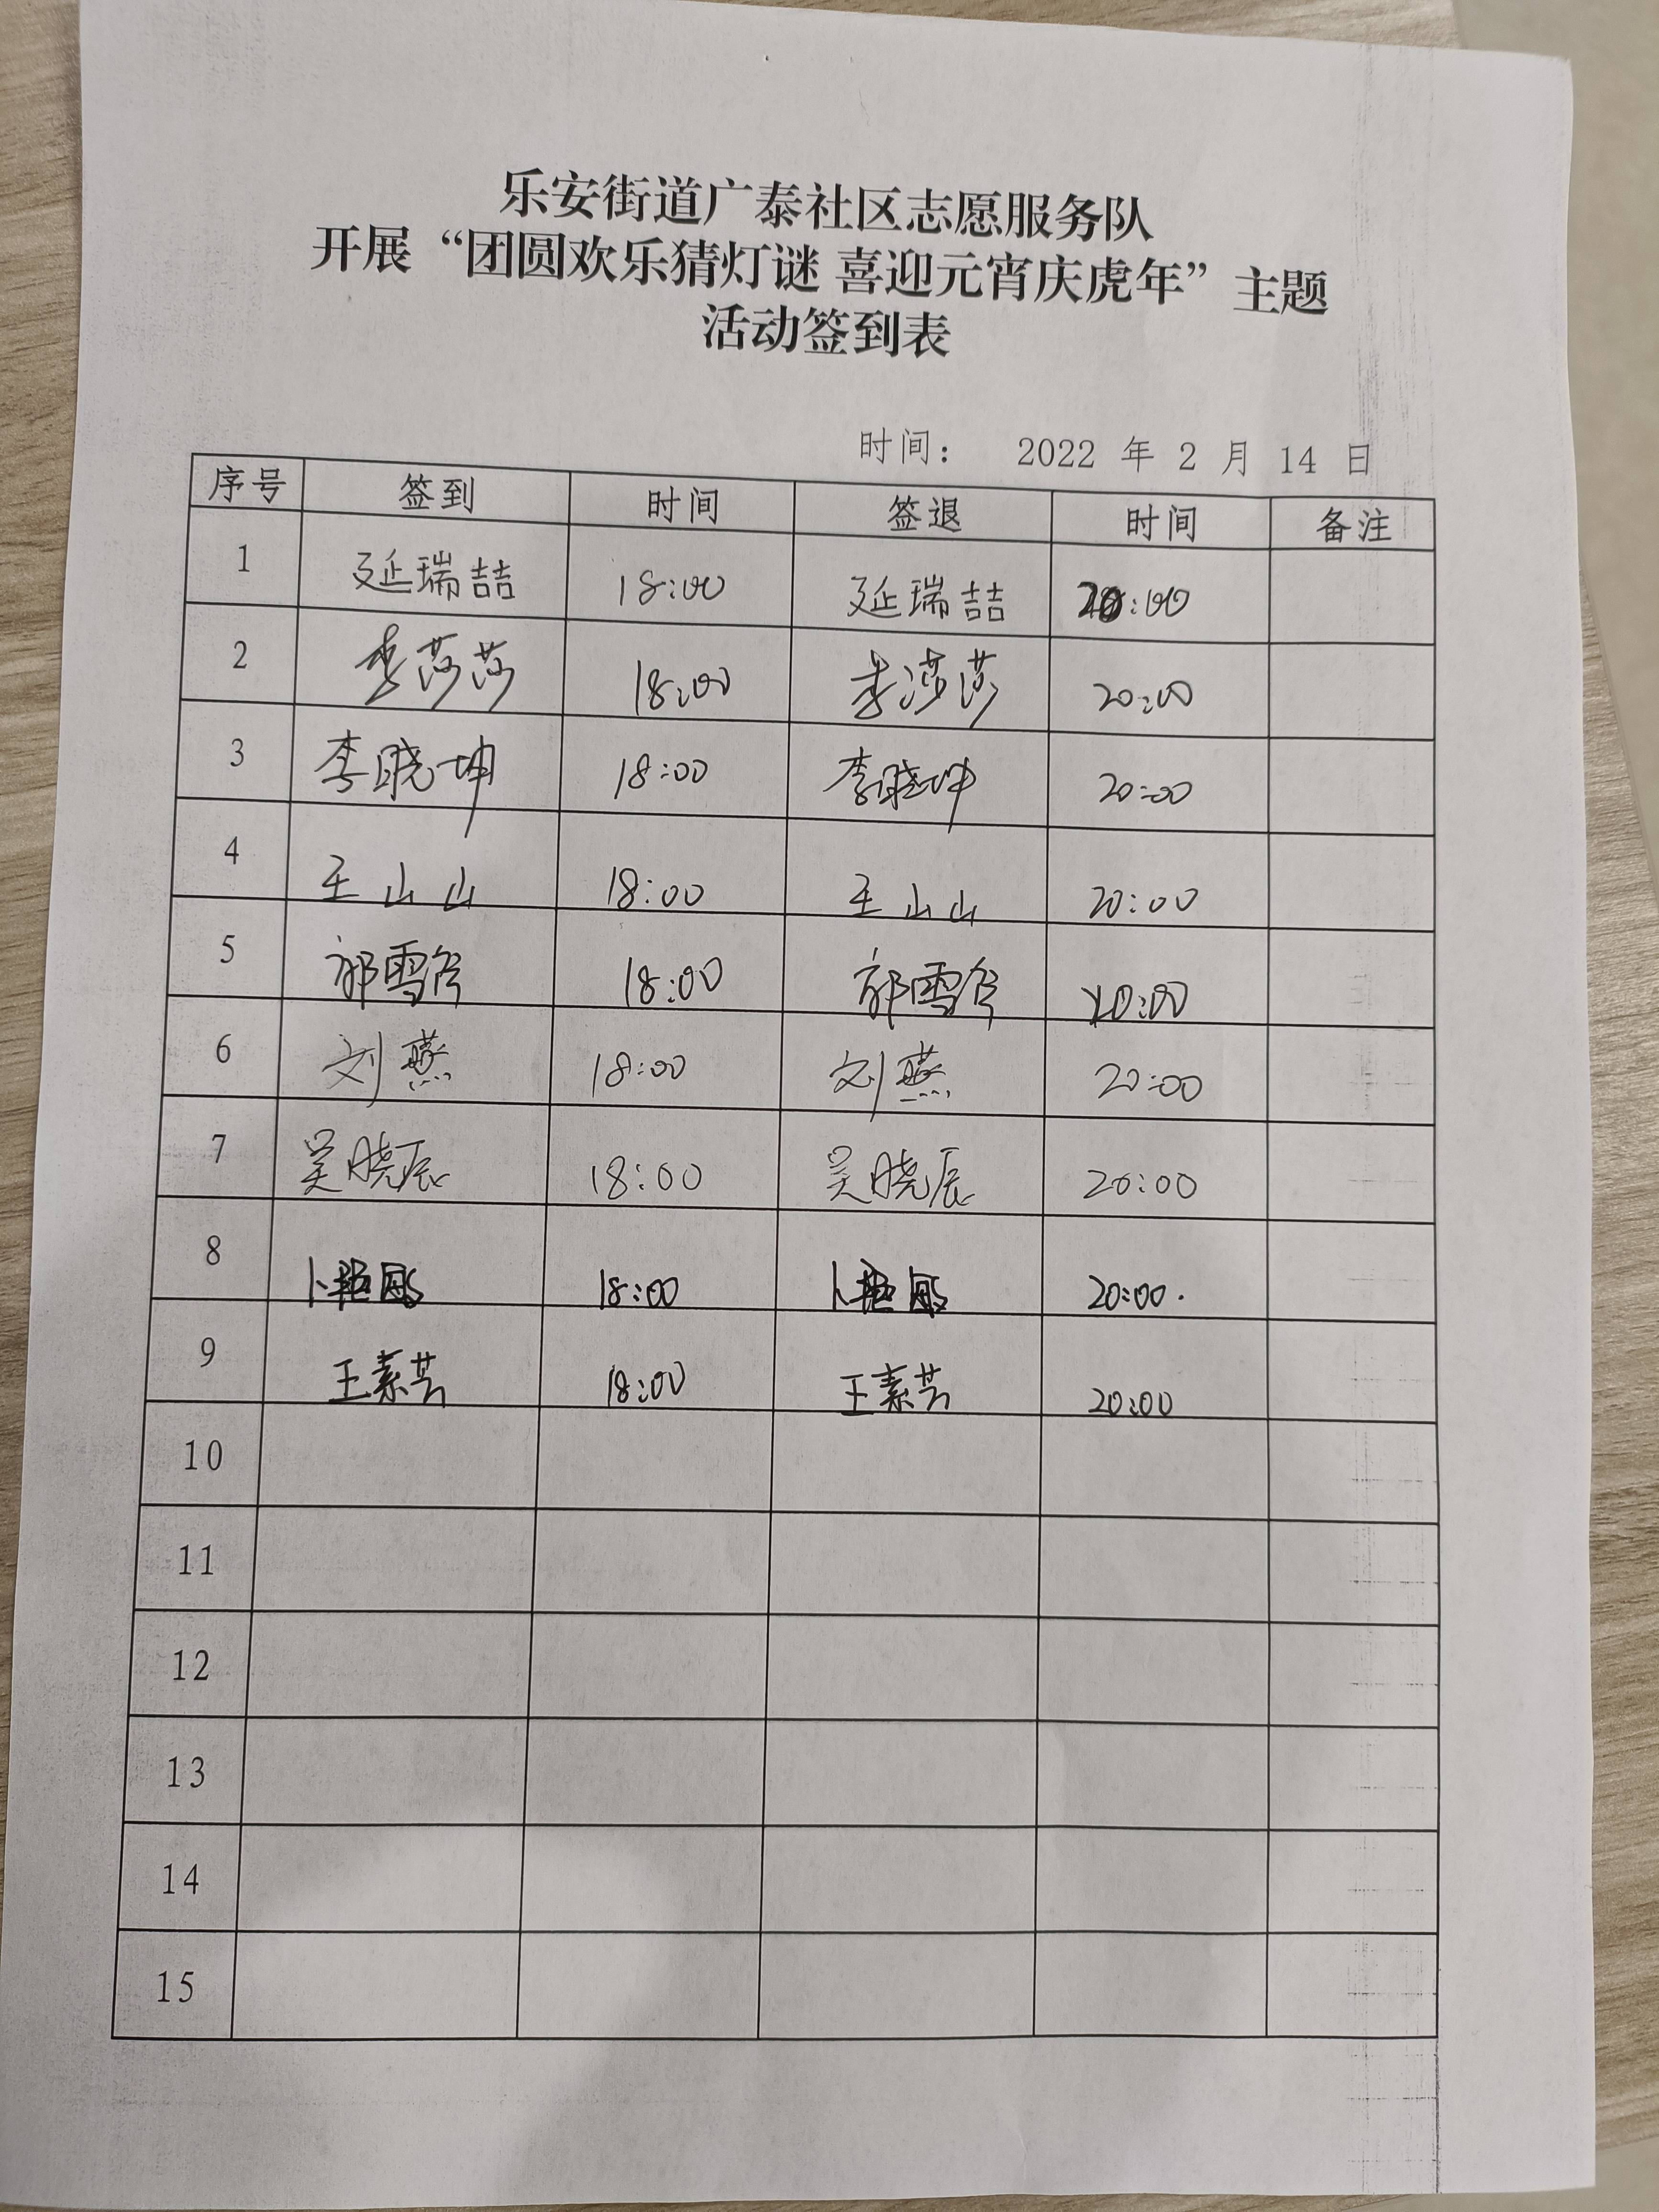 乐安街道广泰社区志愿服务队
开展“团圆欢乐猜灯谜 喜迎元宵庆虎年”主题
活动签到表
时间： 2022 年 2 月 14 日
序号 签到 时间 签退 时间 备注
1 延瑞喆 18:00 延瑞喆 20:00
2 李莎莎 18:00 李莎莎 20:00
3 李晓坤 18:00 李晓坤 20:00
4 王山山 18:00 王山山 20:00
5 郭雪 18:00 郭雪 20:00
6 刘燕 18:00 刘燕 20:00
7 吴晓辰 18:00 吴晓辰 20:00
8 卜艳 18:00 卜艳 20:00.
9 王素芸 18:00 王素芸 20:00
10
11
12
13
14
15